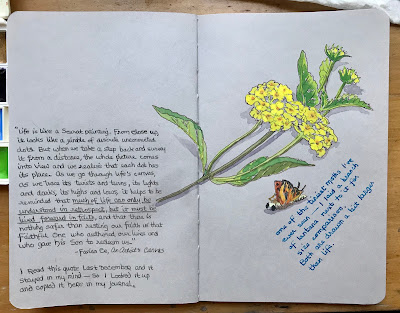 "Life is like a Seurat painting. From close up,
it looks like a jumble of obscure unconnected
dots. But when we take a step back and survey
it from a distance, the whole picture comes
into view and we realize that each dot has
its place. As we go through life's curves,
as we face its twists and turns, its lights
and darks, its highs and lows, it helps to be
reminded that much of life can only be
understood in retrospect, but it must be
lived forward in faith, and that there is
nothing safer than resting our faith in that
Faithful One who authored our lives and
who gave his Son to redeem us."
I read this quote last December and it
stayed in my mind — so I looked it up
and copied it here in my journal.
one of the tiniest moths I've
ever seen — I laid a branch
of lantana next to it for
size comparison.
Both are drawn a bit larger
than life.